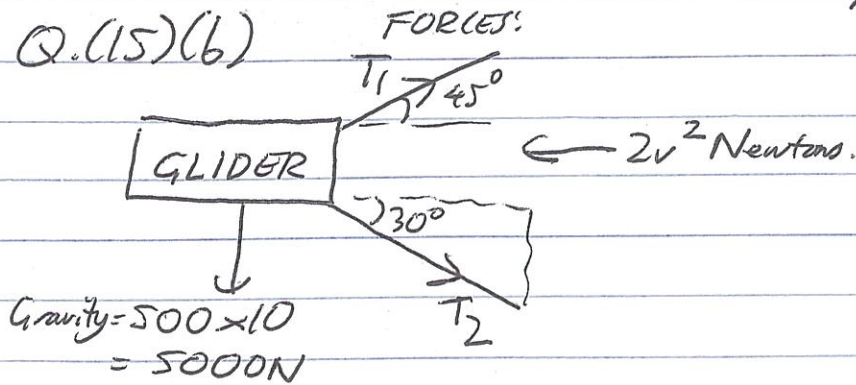 Q.(15)(b)
FORCES:
T₁
45°
GLIDER
← 2v² Newtons.
30°
T₂
Gravity = 500 × 10
= 5000N